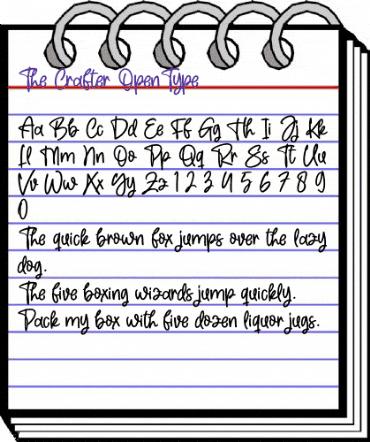 The Crafter OpenType
Aa Bb Cc Dd Ee Ff Gg Hh Ii Jj Kk
Ll Mm Nn Oo Pp Qq Rr Ss Tt Uu
Vv Ww Xx Yy Zz 1 2 3 4 5 6 7 8 9
0
The quick brown fox jumps over the lazy
dog.
The five boxing wizards jump quickly.
Pack my box with five dozen liquor jugs.